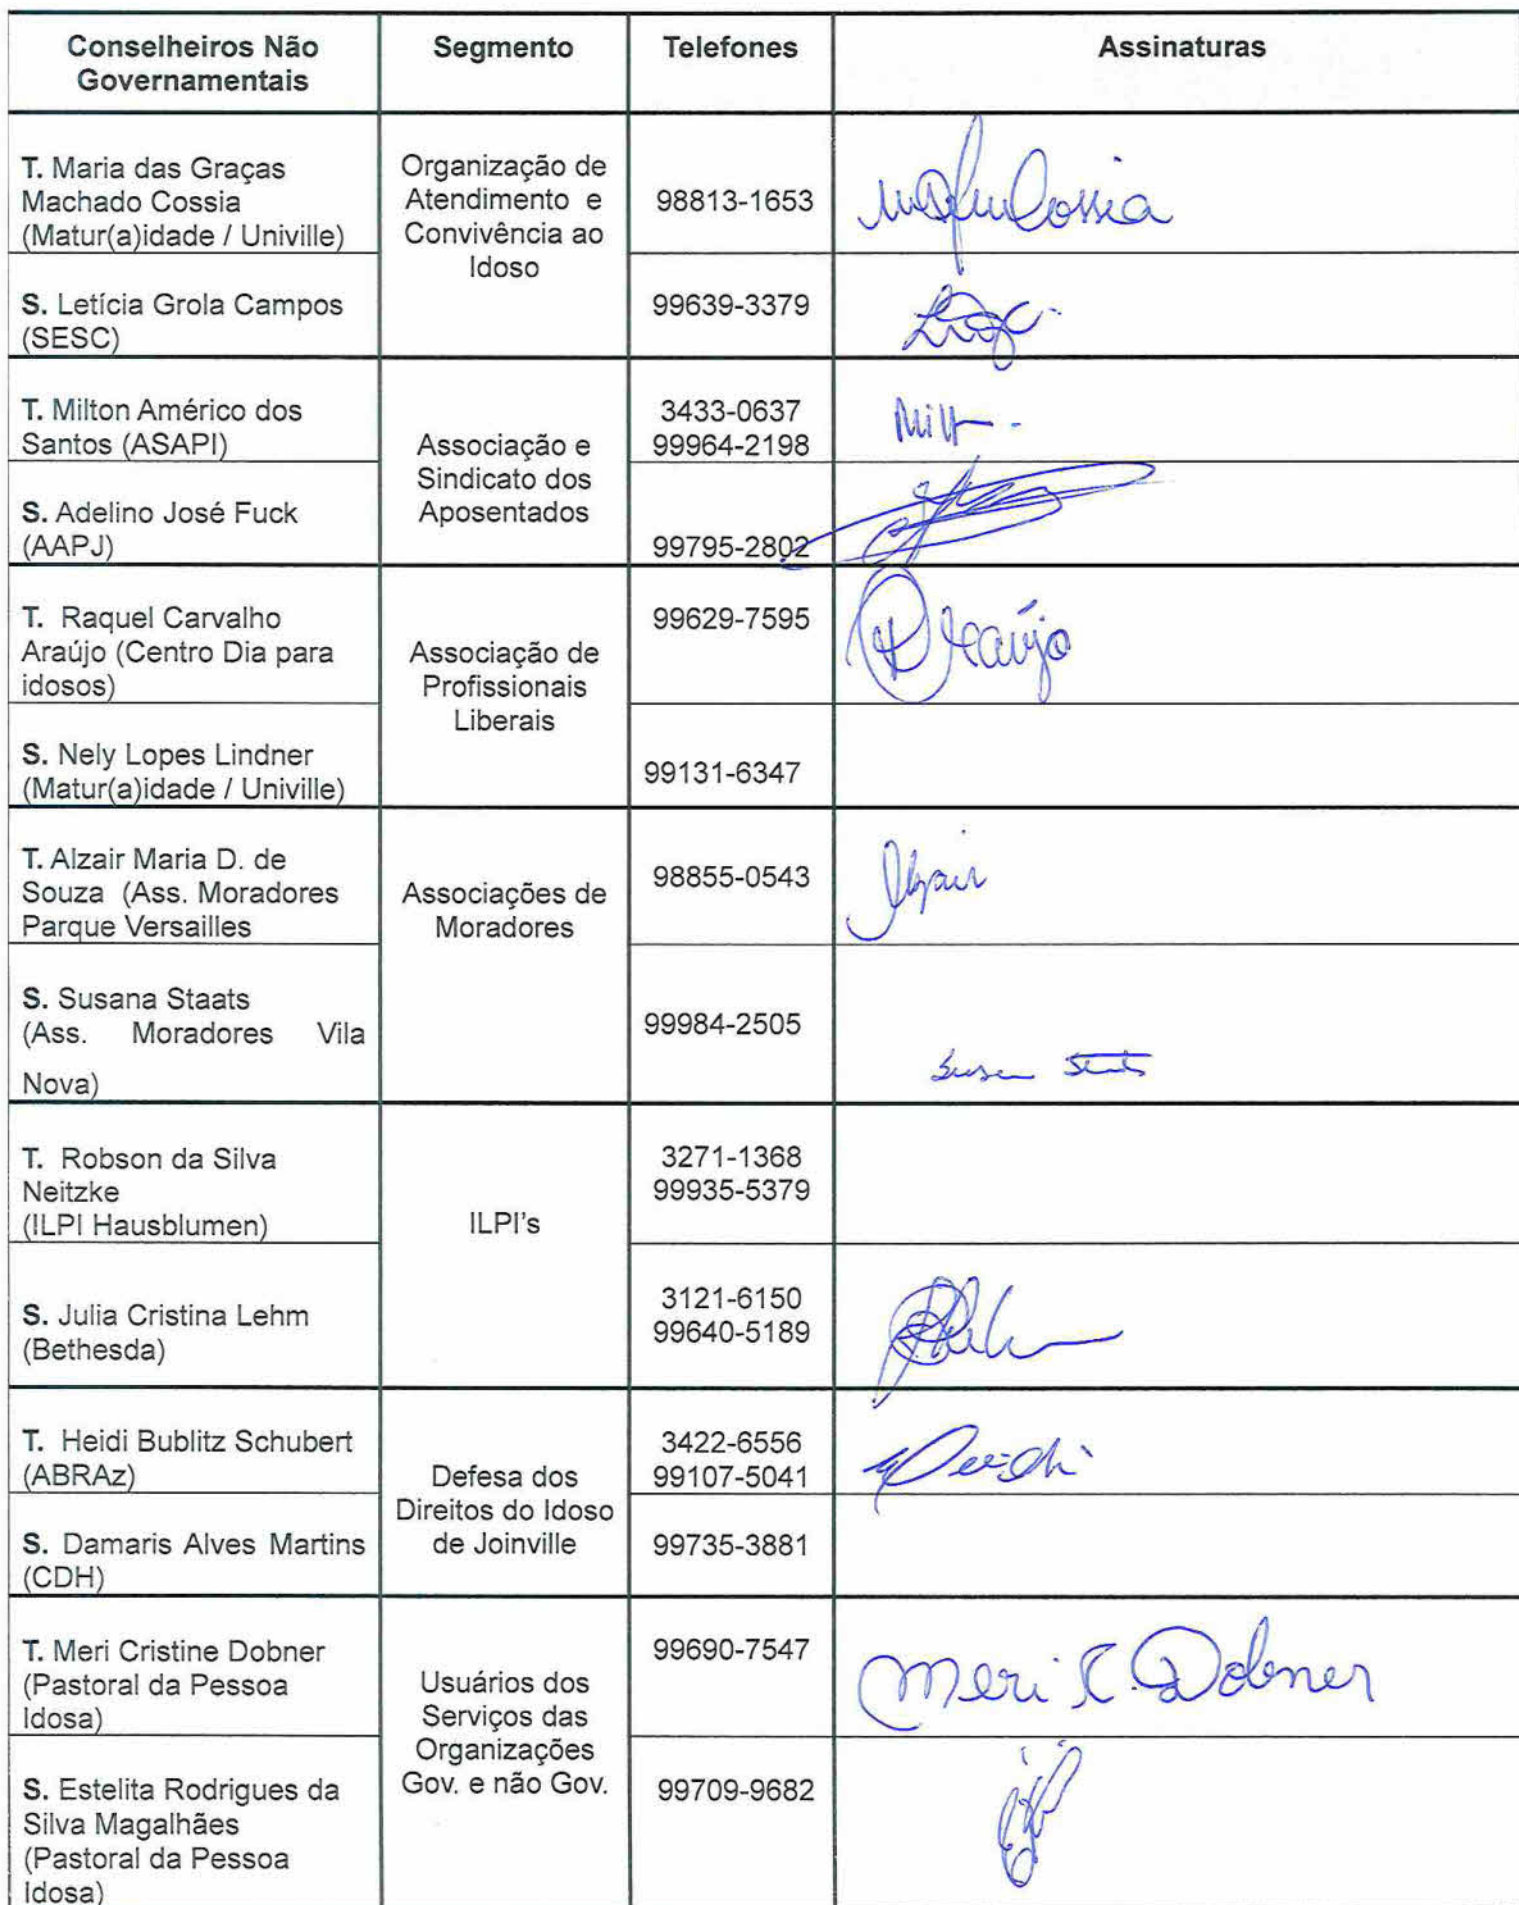 Conselheiros Não
Governamentais
Segmento
Telefones
Assinaturas
T. Maria das Graças
Machado Cossia
(Matur(a)idade / Univille)
Organização de
Atendimento e
Convivência ao
Idoso
98813-1653
Cossia
S. Letícia Grola Campos
(SESC)
99639-3379
T. Milton Américo dos
Santos (ASAPI)
Associação e
Sindicato dos
Aposentados
3433-0637
99964-2198
S. Adelino José Fuck
(AAPJ)
99795-2802
T. Raquel Carvalho
Araújo (Centro Dia para
idosos)
Associação de
Profissionais
Liberais
99629-7595
Araújo
S. Nely Lopes Lindner
(Matur(a)idade / Univille)
99131-6347
T. Alzair Maria D. de
Souza (Ass. Moradores
Parque Versailles
Associações de
Moradores
98855-0543
Alzair
S. Susana Staats
(Ass. Moradores Vila
Nova)
99984-2505
T. Robson da Silva
Neitzke
(ILPI Hausblumen)
ILPI's
3271-1368
99935-5379
S. Julia Cristina Lehm
(Bethesda)
3121-6150
99640-5189
T. Heidi Bublitz Schubert
(ABRAz)
Defesa dos
Direitos do Idoso
de Joinville
3422-6556
99107-5041
S. Damaris Alves Martins
(CDH)
99735-3881
T. Meri Cristine Dobner
(Pastoral da Pessoa
Idosa)
Usuários dos
Serviços das
Organizações
Gov. e não Gov.
99690-7547
Meri C. Dobner
S. Estelita Rodrigues da
Silva Magalhães
(Pastoral da Pessoa
Idosa)
99709-9682